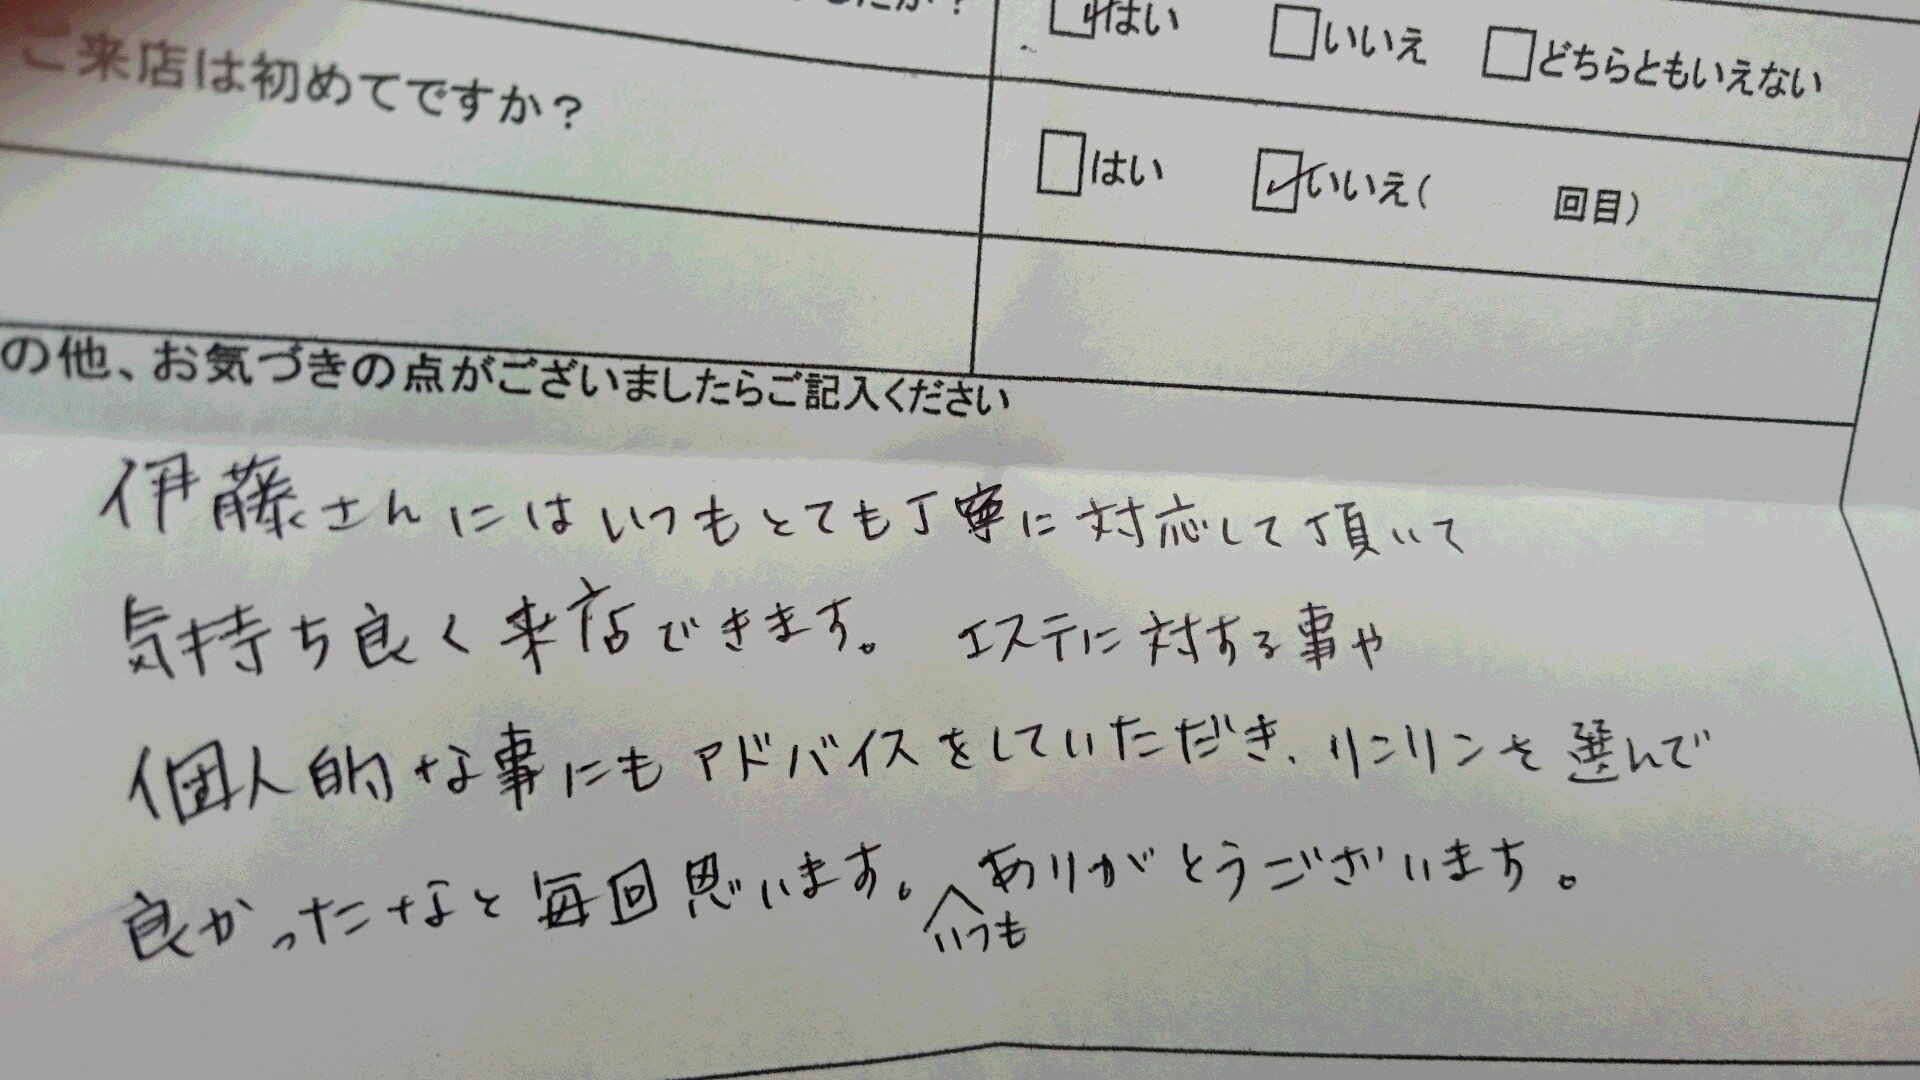 はい いいえ どちらともいえない
ご来店は初めてですか？
はい いいえ( 回目)
の他、お気づきの点がございましたらご記入ください
伊藤さんにはいつもとても丁寧に対応して頂いて
気持ち良く来店できます。 エステに対する事や
個人的な事にもアドバイスをしていただき、リンリンを選んで
良かったなと毎回思います。いつもありがとうございます。